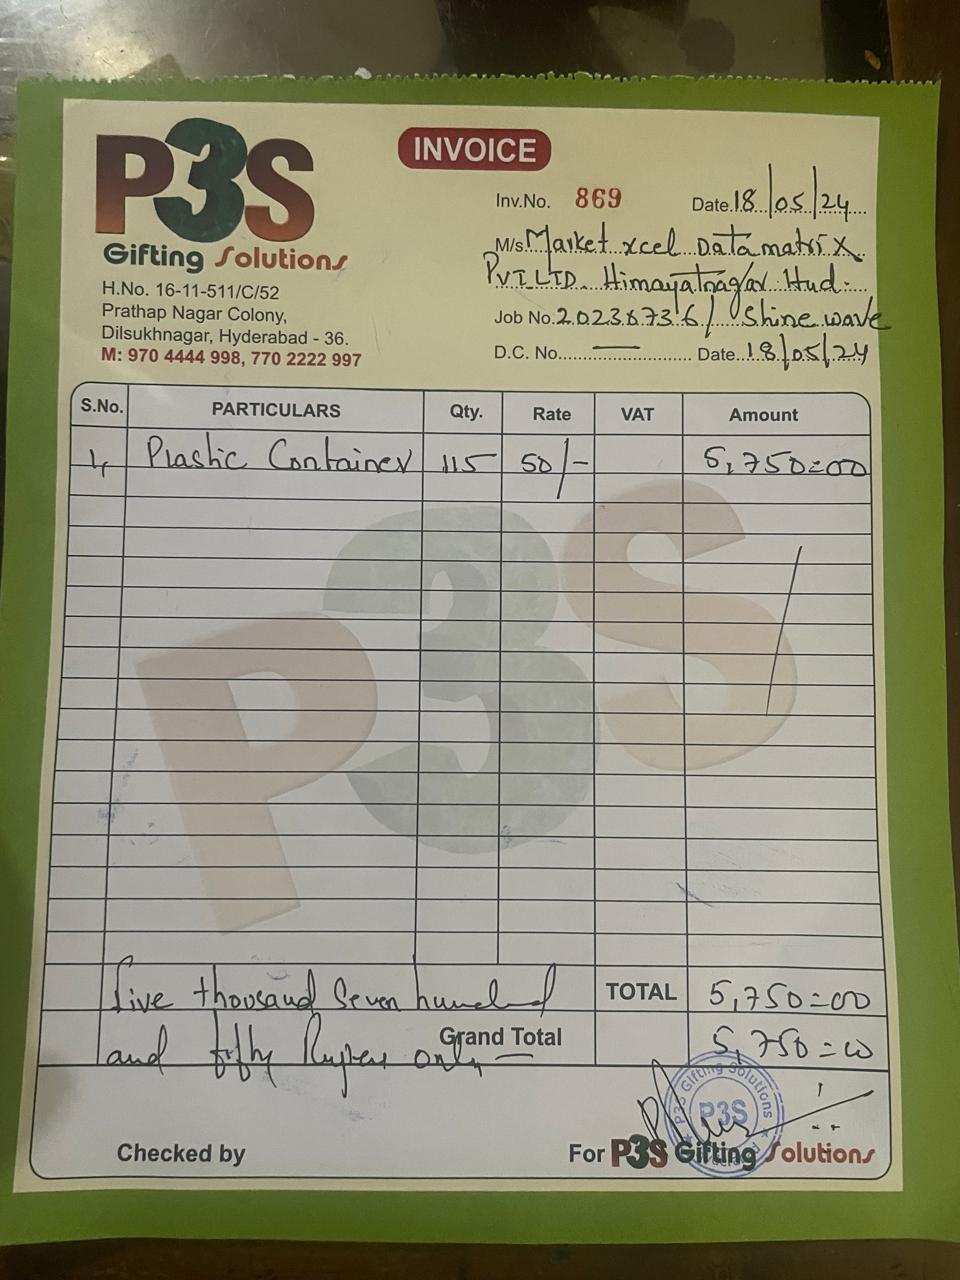 P3S
Gifting Solutions
H.No. 16-11-511/C/52
Prathap Nagar Colony,
Dilsukhnagar, Hyderabad - 36.
M: 970 4444 998, 770 2222 997
INVOICE
Inv.No. 869 Date.18/05/24
M/s Market xcel Datamatrix
Pvt LTD. Himayatnagar Hyd.
Job No. 202367376/ Shine wave
D.C. No.......—....... Date..18/05/24
S.No. PARTICULARS Qty. Rate VAT Amount
1, Plastic Container 115 50/- 5,750=00
P3S
five thousand Seven hundred TOTAL 5,750=00
and fifty Rupees only — Grand Total 5,750=00
P3S Gifting Solutions
P3S
Checked by For P3S Gifting Solutions